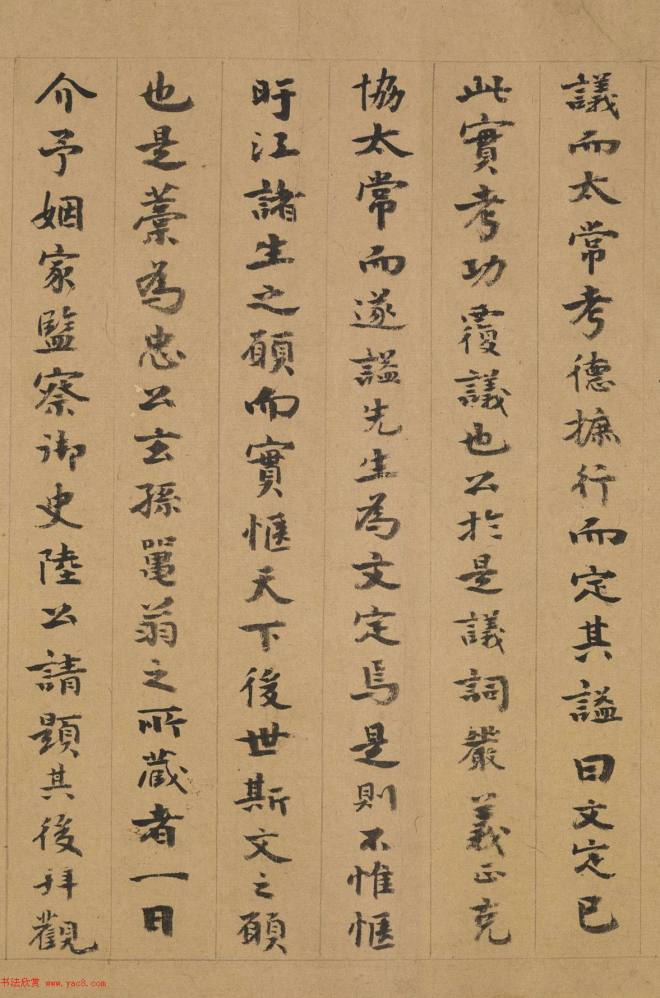 議而太常考德據行而定其謚曰文定已
此實考功覆議也公於是議詞嚴義正克
協太常而遂謚先生為文定焉是則不惟愜
盱江諸生之願而實愜天下後世斯文之願
也是藁為忠公玄孫翁之所藏者一日
介予姻家監察御史陸公請題其後拜觀
书法欣赏 www.yac8.com